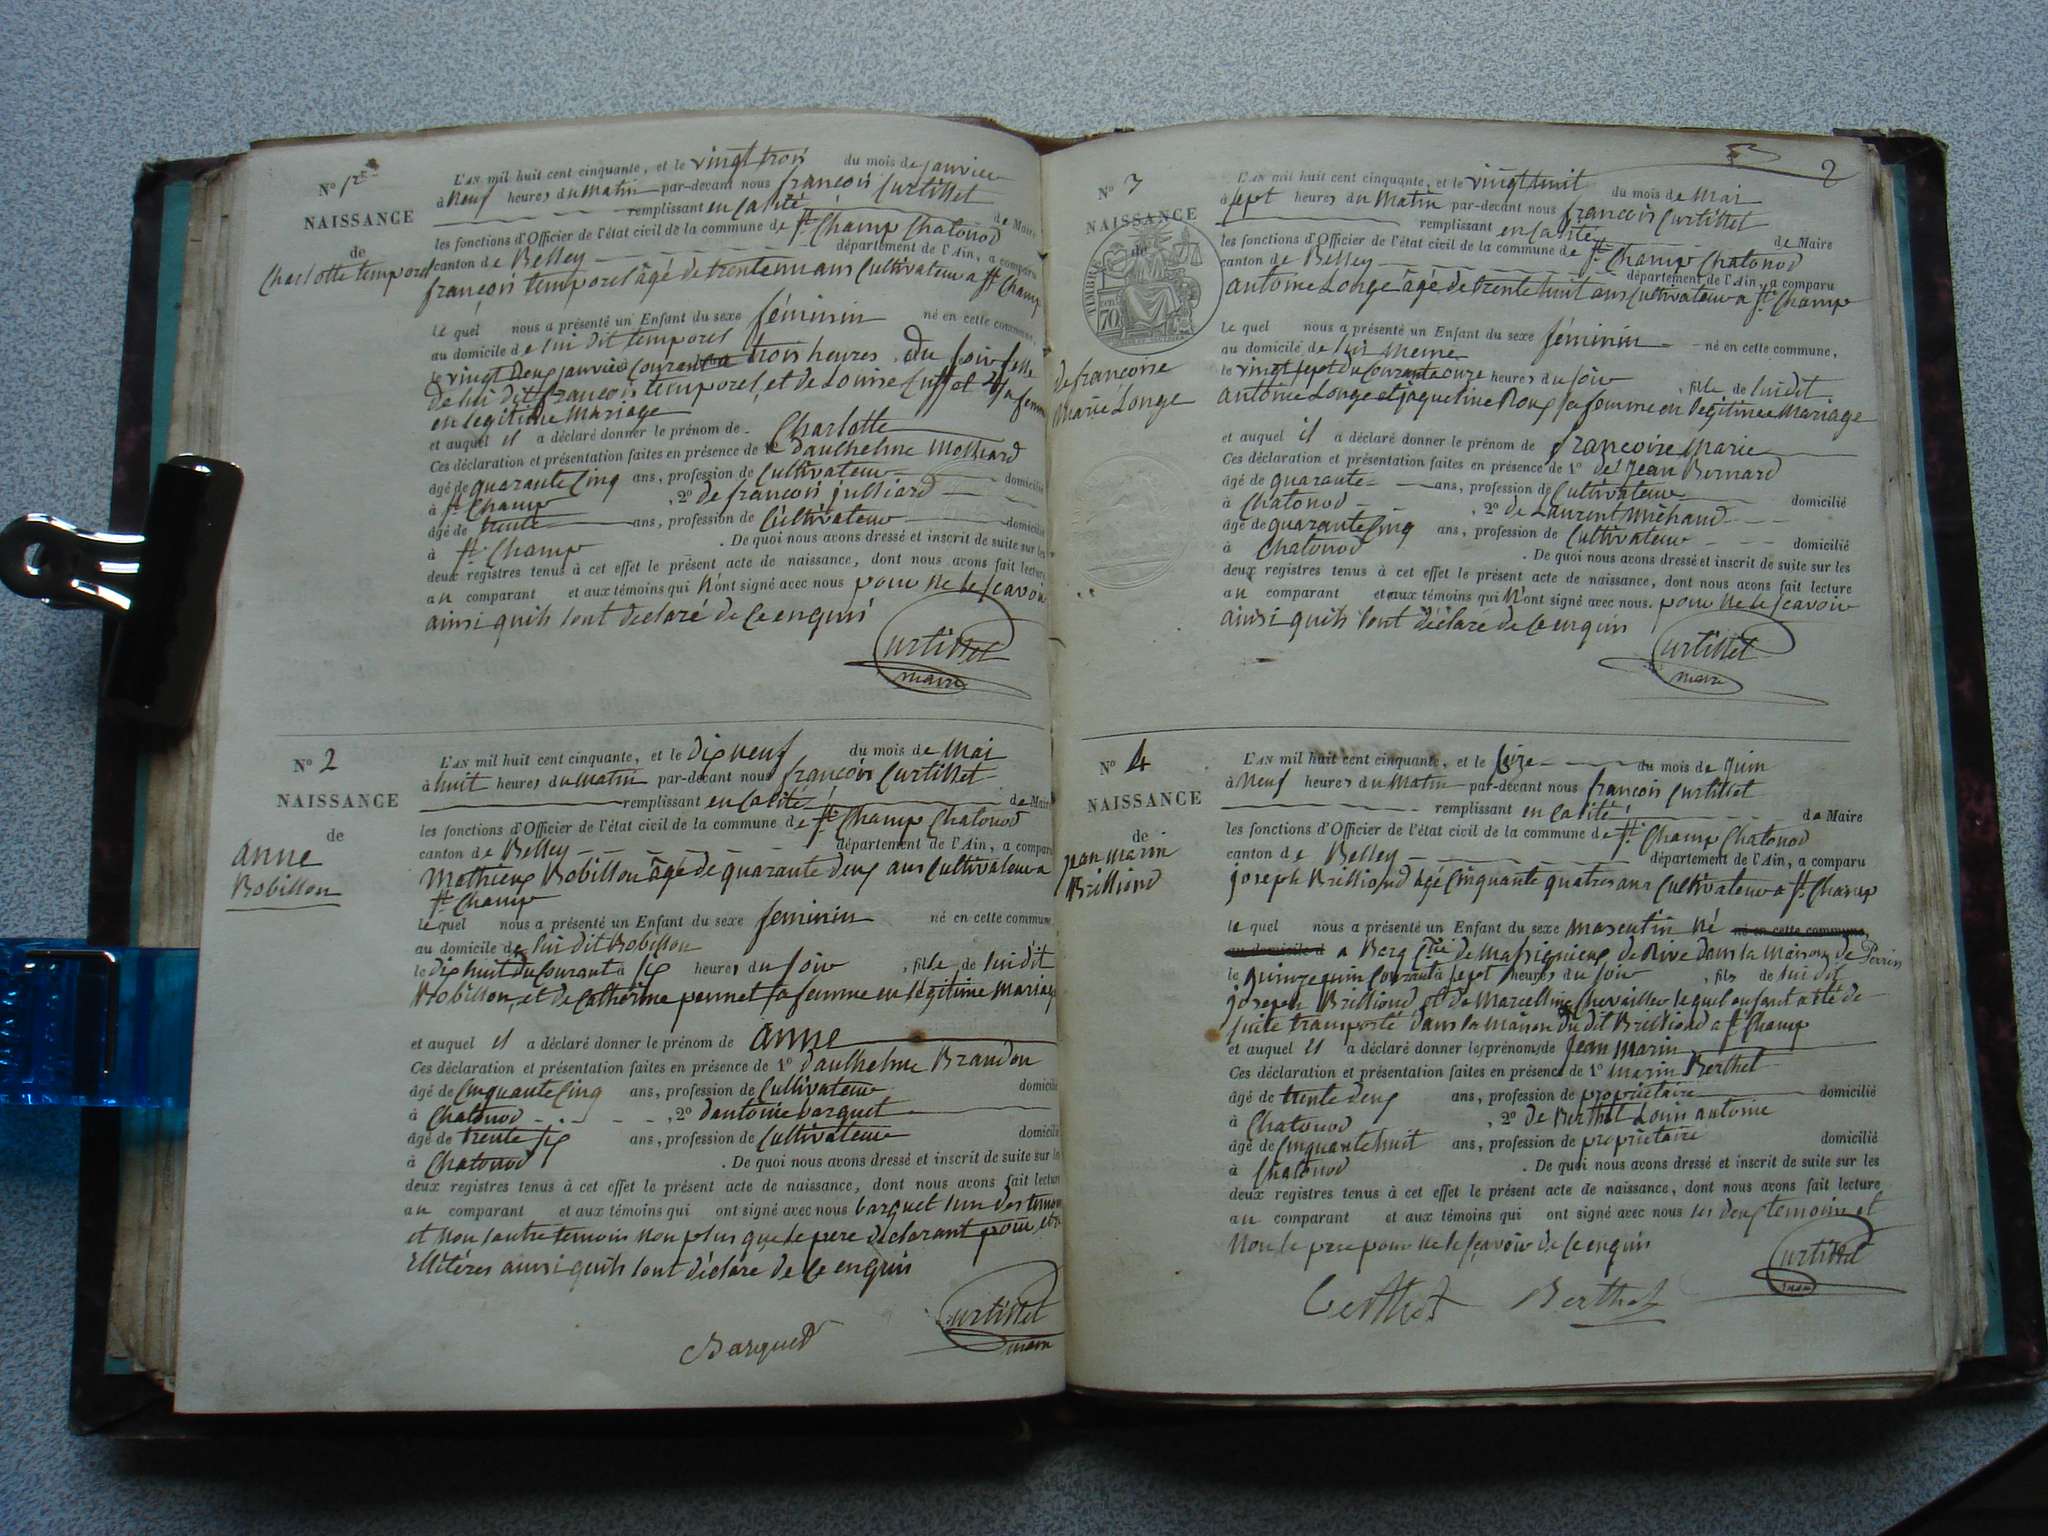 No 1er
NAISSANCE
de
Charlotte temporel
L'AN mil huit cent cinquante, et le vingt trois du mois de janvier
à neuf heures du matin par-devant nous françois Curtillet
remplissant en calité de Maire
les fonctions d'Officier de l'état civil de la commune de St Champ Chatonod
canton de Belley département de l'Ain, a comparu
françois temporel âgé de trente un ans Cultivateur a St Champ
le quel nous a présenté un Enfant du sexe féminin né en cette commune,
au domicile de lui dit temporel
le vingt deux janvier courant a trois heures du soir fille
de lui dit françois temporel, et de Louise sa femme
en legitime Mariage
et auquel il a déclaré donner le prénom de Charlotte
Ces déclaration et présentation faites en présence de 1º danthelme Molliard
âgé de quarante Cinq ans, profession de Cultivateur domicilié
à St Champ , 2º de françois julliard
âgé de trente ans, profession de Cultivateur domicilié
à St Champ . De quoi nous avons dressé et inscrit de suite sur les
deux registres tenus à cet effet le présent acte de naissance, dont nous avons fait lecture
au comparant et aux témoins qui n'ont signé avec nous pour ne le scavoir
ainsi quils sont déclaré de ce enquis
Curtillet
maire
No 2
NAISSANCE
de
anne
Bobillon
L'AN mil huit cent cinquante, et le dix neuf du mois de Mai
à huit heures du matin par-devant nous françois Curtillet
remplissant en calité de Maire
les fonctions d'Officier de l'état civil de la commune de St Champ Chatonod
canton de Belley département de l'Ain, a comparu
Mathieux Bobillon âgé de quarante deux ans Cultivateur a
St Champ
le quel nous a présenté un Enfant du sexe feminin né en cette commune
au domicile de lui dit Bobillon
le dix huit du Courant à six heures du soir , fille de lui dit
Bobillon, et de Catherine pernet sa femme en légitime mariage
et auquel il a déclaré donner le prénom de anne
Ces déclaration et présentation faites en présence de 1º danthelme Brandon
âgé de Cinquante Cinq ans, profession de Cultivateur domicilié
à Chatonod , 2º dantoine barquet
âgé de trente six ans, profession de Cultivateur domicilié
à Chatonod . De quoi nous avons dressé et inscrit de suite sur les
deux registres tenus à cet effet le présent acte de naissance, dont nous avons fait lecture
au comparant et aux témoins qui ont signé avec nous barquet lun des temoins
et non lautre temoin non plus que le pere déclarant pour etre
illitéres ainsi quils sont déclare de ce enquis
Curtillet
maire
Barquet
2
No 3
NAISSANCE
de
TIMBRE
70
de francoise
Marie Longe
L'AN mil huit cent cinquante, et le vingt huit du mois de Mai
à sept heures du Matin par-devant nous françois Curtillet
remplissant en calité de Maire
les fonctions d'Officier de l'état civil de la commune de St Champ Chatonod
canton de Belley département de l'Ain, a comparu
antoine Longe âgé de trente huit ans Cultivateur a St Champ
le quel nous a présenté un Enfant du sexe féminin né en cette commune,
au domicile de lui meme
le vingt sept du Courant a onze heures du soir , fille de lui dit
antoine Longe et jaqueline Roux sa femme en legitime Mariage
et auquel il a déclaré donner le prénom de francoise Marie
Ces déclaration et présentation faites en présence de 1º de Jean Bernard
âgé de quarante ans, profession de Cultivateur domicilié
à Chatonod , 2º de Laurent Michaud
âgé de quarante Cinq ans, profession de Cultivateur domicilié
à Chatonod . De quoi nous avons dressé et inscrit de suite sur les
deux registres tenus à cet effet le présent acte de naissance, dont nous avons fait lecture
au comparant et aux témoins qui n'ont signé avec nous. pour ne le scavoir
ainsi quils sont déclaré de ce enquis
Curtillet
maire
No 4
NAISSANCE
de
jean marin
Brilliond
L'AN mil huit cent cinquante, et le seize du mois de juin
à neuf heures du Matin par-devant nous françois Curtillet
remplissant en calité de Maire
les fonctions d'Officier de l'état civil de la commune de St Champ Chatonod
canton de Belley département de l'Ain, a comparu
joseph Brilliond âgé Cinquante quatres ans Cultivateur a St Champ
le quel nous a présenté un Enfant du sexe masculin né né en cette commune,
au domicile d a Berg de Massignieux de Rive dans la maison de Perrin
le quinze juin Courant à sept heures du soir , fils de lui dit
joseph Brilliond et de Marcelline Chevaillier lequel enfant a été de
suite transporté dans la maison du dit Brilliond a St Champ
et auquel il a déclaré donner les prénoms de Jean Marin
Ces déclaration et présentation faites en présence de 1º Marin Berthet
âgé de trente deux ans, profession de propriétaire domicilié
à Chatonod , 2º de Berthet Louis antoine
âgé de Cinquante huit ans, profession de propriétaire domicilié
à Chatonod . De quoi nous avons dressé et inscrit de suite sur les
deux registres tenus à cet effet le présent acte de naissance, dont nous avons fait lecture
au comparant et aux témoins qui ont signé avec nous les deux temoins et
Non le pere pour ne le scavoir de ce enquis
Curtillet
maire
Berthet Berthet